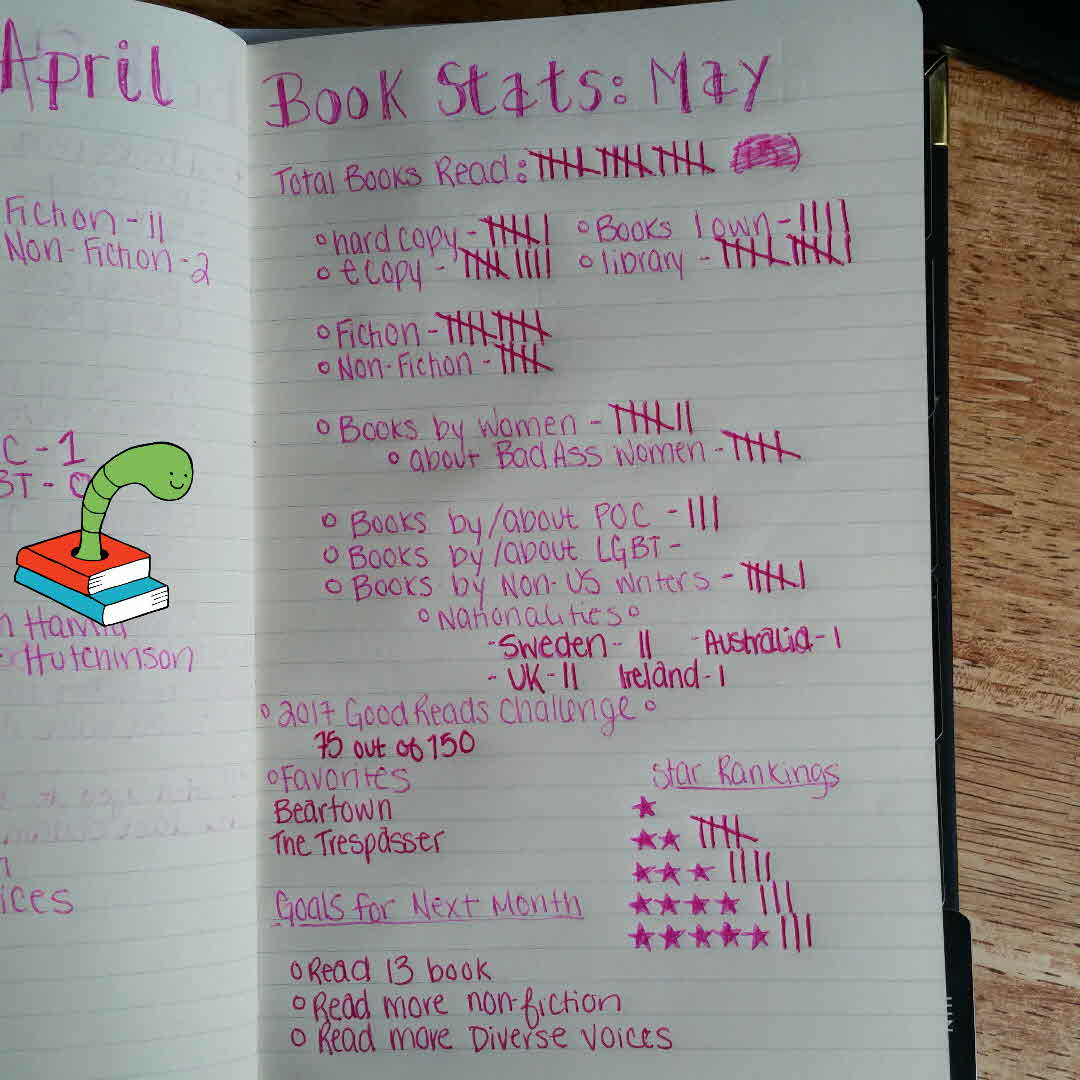 April
Fiction - 11
Non-Fiction - 2
C - 1
BT - 0
Hutchinson
ices
Book Stats: May
Total Books Read: 卌 卌 卌
hard copy - 卌 | Books I own - ||||
ecopy - 卌 |||| library - 卌 卌 |
Fiction - 卌 卌
Non-Fiction - 卌
Books by Women - 卌 ||
about BadAss Women - 卌
Books by/about POC - |||
Books by/about LGBT -
Books by Non-US Writers - 卌 |
Nationalities
- Sweden - || - Australia - |
- UK - || Ireland - |
2017 GoodReads Challenge
75 out of 150
Favorites
Beartown
The Trespasser
Star Rankings
★
★★ 卌
★★★ ||||
★★★★ |||
★★★★★ |||
Goals for Next Month
Read 13 book
Read more non-fiction
Read more Diverse voices